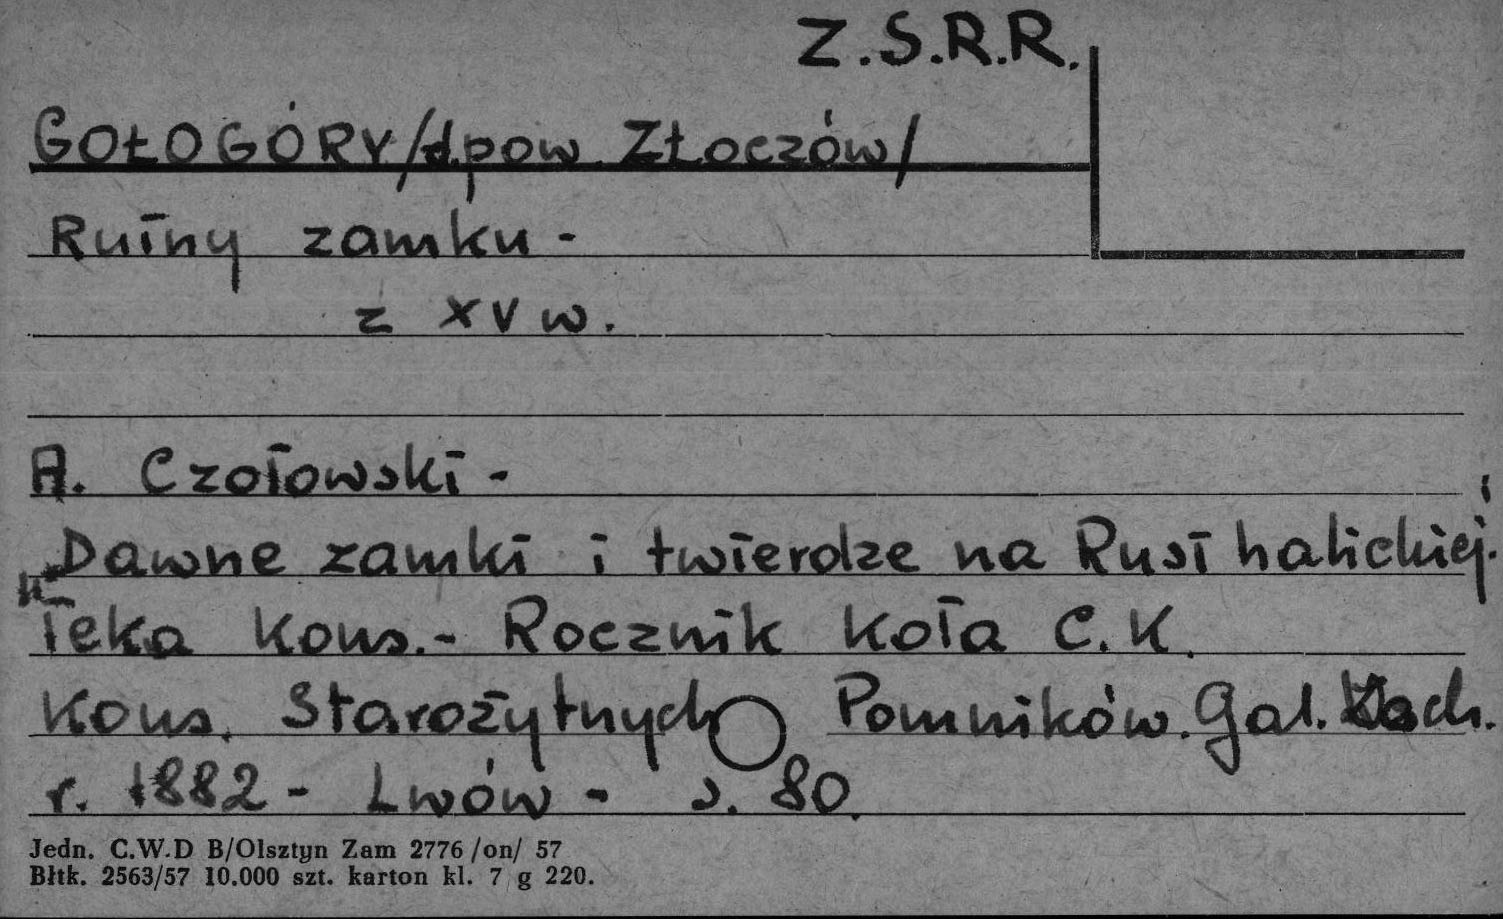 Z.S.R.R.
GOŁOGÓRY /d.pow. Złoczów/
Ruiny zamku -
z XV w.
A. Czołowski -
Dawne zamki i twierdze na Rusi halickiej.
Teka Kons. - Rocznik Koła C.K.
Kons. Starożytnych Pomników. Gal. Wsch.
r. 1882 - Lwów - s. 80.
Jedn. C.W.D B/Olsztyn Zam 2776 /on/ 57
Błtk. 2563/57 10.000 szt. karton kl. 7 g 220.